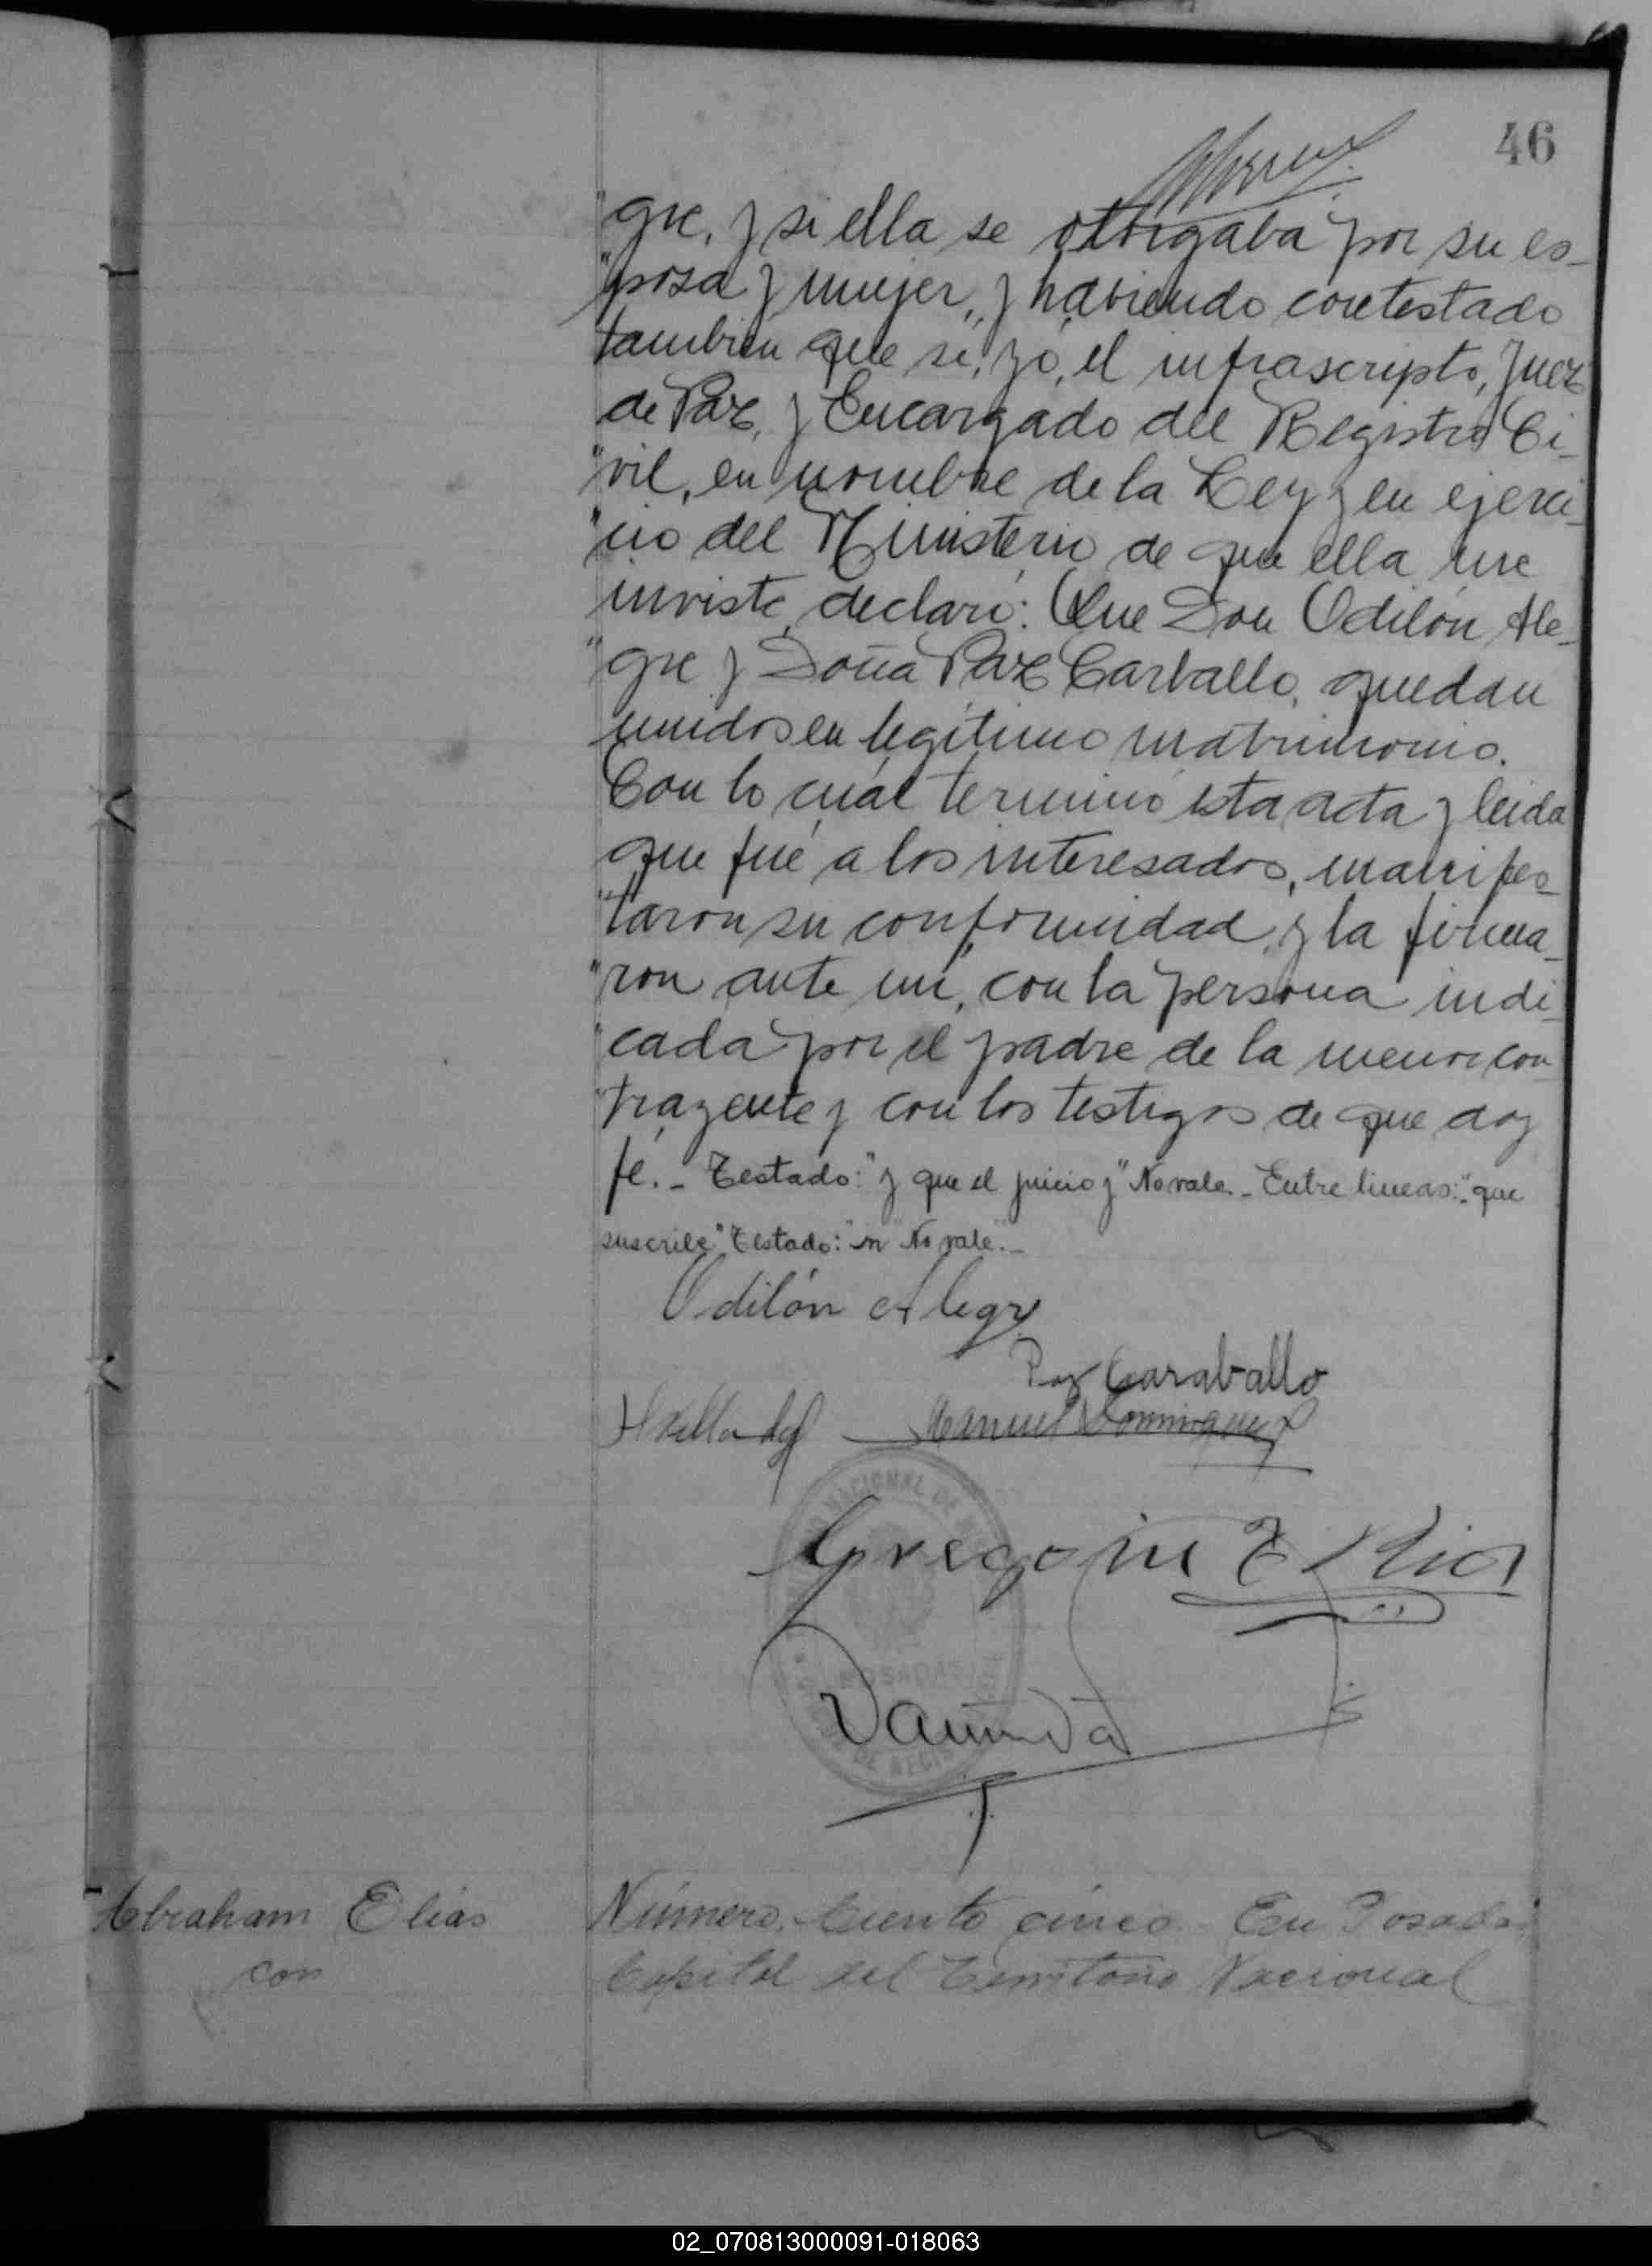 46
"gre, y si ella se otorgaba por su es-
"posa y mujer, y habiendo contestado
también que sí, yo, el infrascripto, Juez
de Paz, y Encargado del Registro Ci-
"vil, en nombre de la Ley y en ejerci-
"cio del Ministerio de que ella me
inviste, declaré: Que Don Odilón Ale-
"gre y Doña Paz Carballo, quedan
unidos en legítimo matrimonio.
Con lo cuál terminó esta acta y leida
que fué a los interesados, manifes-
"taron su conformidad y la firma-
"ron ante mí, con la persona indi-
"cada por el padre de la menor con-
"trayente y con los testigos de que doy
fé. - Testado: "y que el juicio y" No vale. - Entre lineas: "que
suscribe" Testado: "n" No vale. -
Odilón Alegre
Paz Caraballo
Manuel Dominguez
NACIONAL DE
Gregorio
POSADAS
DE REGIS
Abraham Elias
con
Número. Ciento cinco. En Posadas
Capital del Territorio Nacional
02_070813000091-018063